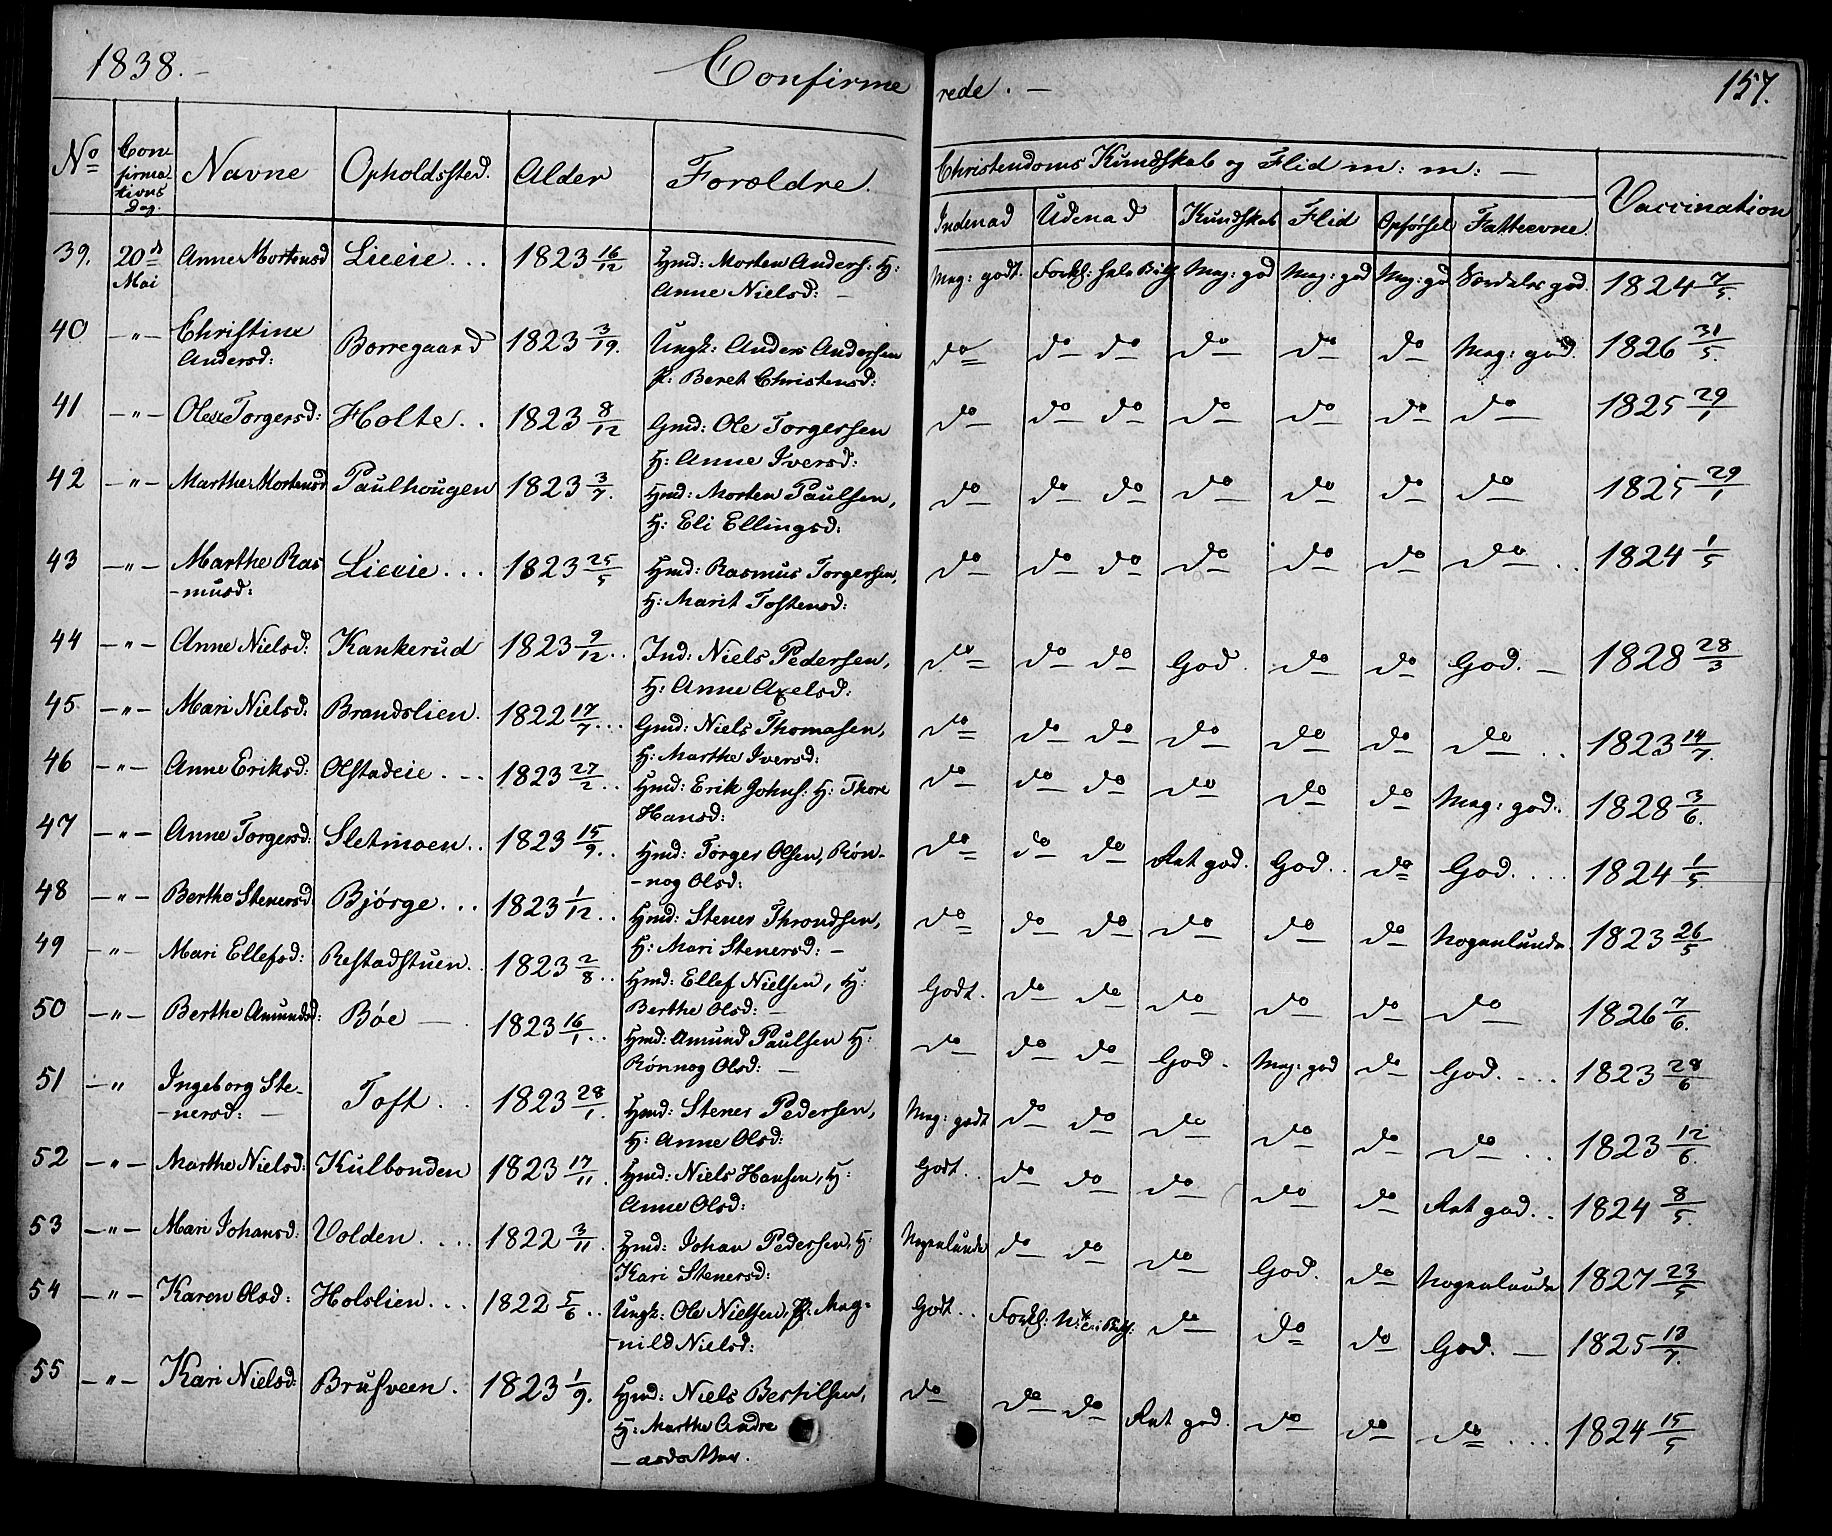 1838. Confirmerede. 157.
Christendoms Kundskab og Flid m: m:
No Confirmations Dag. Navne Opholdssted. Alder Forældre. Indenad Udenad Kundskab Flid Opførsel Fatteevne. Vaccination
39. 20de Mai Anne Mortensd Lieeie... 1823 16/12 Hmd: Morten Anders: H: Anne Nielsd: Meg: godt. Forkl: hele Mag: god Mag: god Mag: god Særdeles god. 1824 7/5.
40 -"- Christine Andersd: Borregaard 1823 3/19. Ungk: Anders Andersen P: Beret Christensd: do do do do do do Meg: god. 1826 31/5.
41 -"- Olea Torgersd: Holte.. 1823 8/12 Gmd: Ole Torgersen H: Anne Iversd: do do do do do do do 1825 29/1
42 -"- Marthe Mortensd Paulhougen 1823 3/7. Hmd: Morten Paulsen, H: Eli Ellingsd: do do do do do do do 1825 29/1
43 -"- Marthe Ras-musd: Lieeie... 1823 25/5 Hmd: Rasmus Torgersen, H: Marit Tostensd: do do do do do do do.. 1824 1/5
44 -"- Anne Nielsd: Kankerud 1823 9/12.. Ind: Niels Pedersen, H: Anne Axelsd: do do do God. do do God. 1828 28/3
45 -"- Mari Nielsd: Brandslien. 1822 17/7... Gmd: Niels Thomasen, H: Marthe Iversd: do do do do do do do.. 1823 14/7.
46 -"- Anne Eriksd: Olstadeie.-. 1823 27/2.. Hmd: Erik Johns: H: Thore Hansd: do do do do do do Meg: god. 1828 3/6.
47 -"- Anne Torgersd: Sletmoen.. 1823 15/9.. Hmd: Torger Olsen, Røn-nog Olsd: do do do Ret god. God.. do God.... 1824 1/5.
48 -"- Berthe Stenersd Bjørge... 1823 1/12.. Hmd: Stener Throndsen, H: Mari Stenersd: do do do do do do Nogenlunde 1823 26/5
49 -"- Mari Ellefsd: Restadstuen.. 1823 2/8.. Hmd: Ellef Nielsen, H: Berthe Olsd: Godt. do do do do do do 1826 7/6.
50 -"- Berthe Amundsd: Bøe 1823 16/1.. Hmd: Amund Paulsen H: Rønnog Olsd: do do do God. Meg: god do God.... 1823 28/6
51 -" Ingeborg Ste-nersd: Toft.. 1823 28/1. Hmd: Stener Pedersen, H: Anne Olsd: Meg: godt do do do do do do.. 1823 12/6.
52 -"- Marthe Nielsd: Kulbonden 1823 17/11. Hmd: Niels Hansen, H: Anne Olsd: Godt.. do do do do do Ret god.. 1824 8/5.
53 -"- Mari Johansd: Volden.... 1822 3/11. Hmd: Johan Pedersen, H: Kari Stenersd: Nogenlunde do do do God. do Nogenlunde 1827 23/5
54 -"- Karen Olsd: Holslien... 1822 5/6.. Ungk: Ole Nielsen, P: Mag-nild Nielsd: Godt.. Forkl: do do do God. 1825 13/7.
55 -"- Kari Nielsd: Brusveen. 1823 1/9. Hmd: Niels Bertilsen, H: Marthe Andre-asdatter. do do do Ret god. do do do.... 1824 15/5